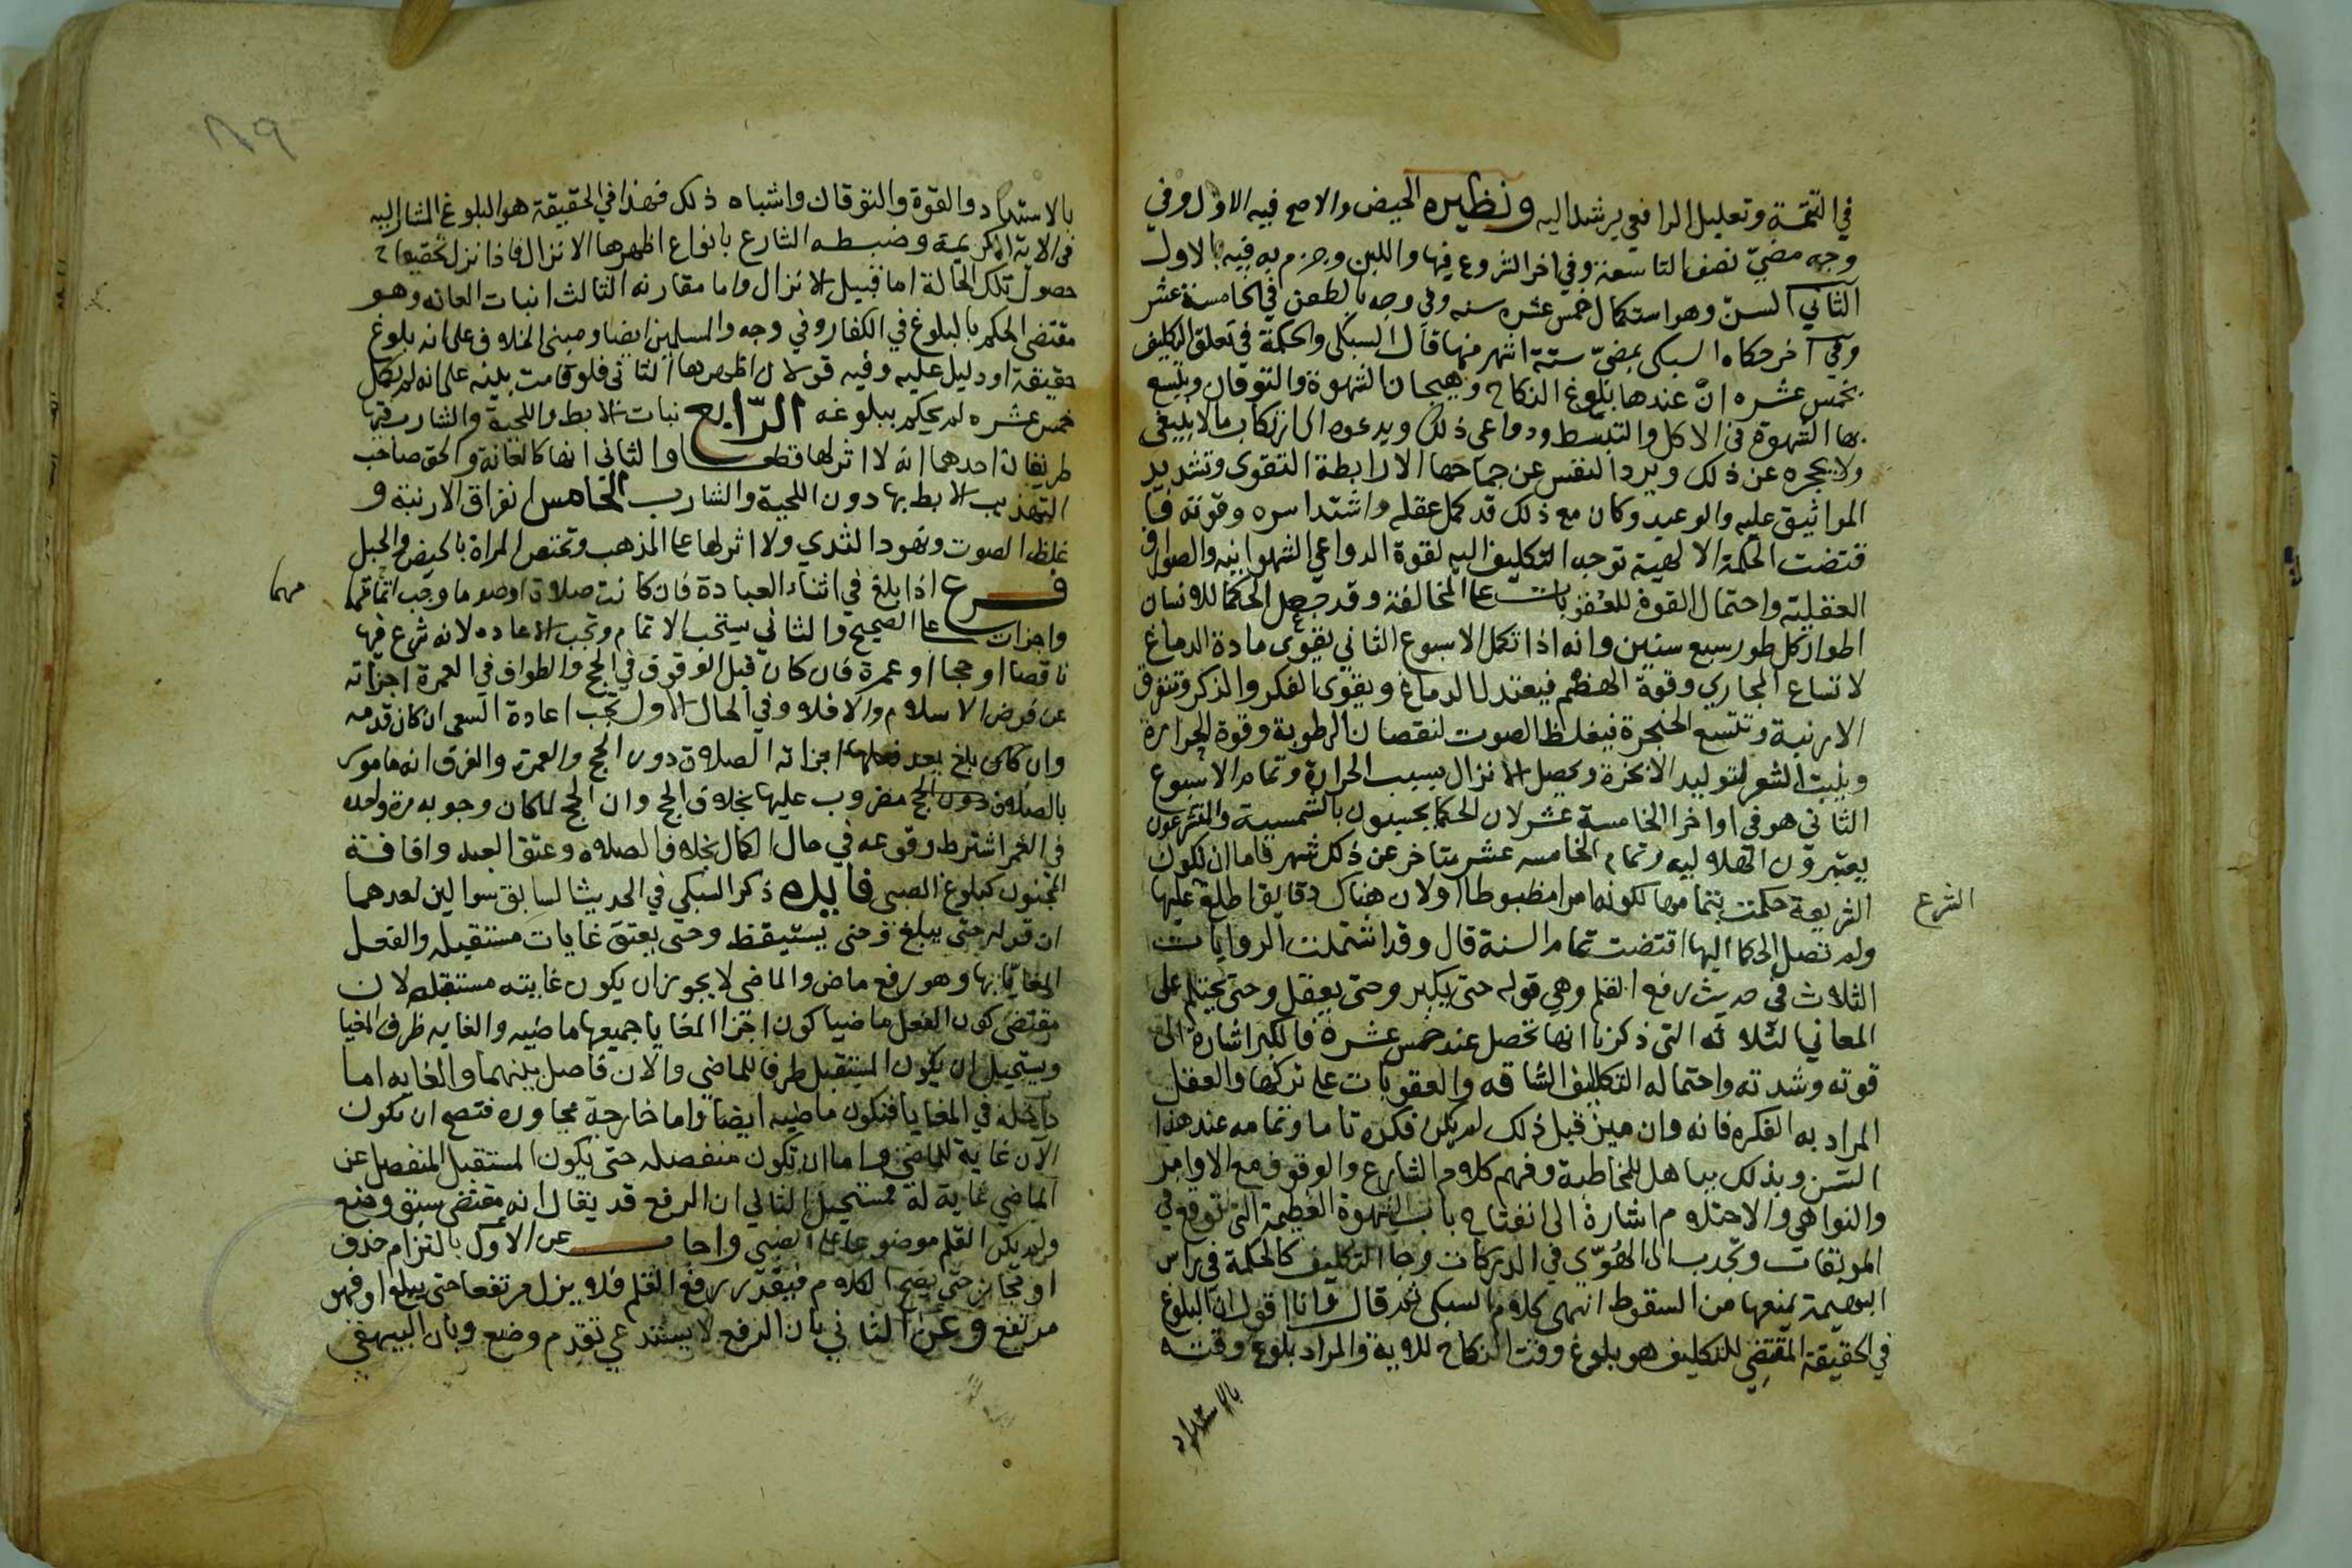 في التتمة وتعليل الرافعي يرشد اليه ونظيره الحيض والاصح فيه الاول وفي
وجه مضيّ نصف التاسعة وفي اخر الشروع فيها واللبن وجزم به فيه بالاول
الثاني السنّ وهو استكمال خمس عشره سنه وفي وجه بالطعن في الخامسة عشر
وفي آخر حكاه السبكي بمضيّ ستة اشهر منها قال السبكي والحكمة في تعلق التكليف
بخمس عشره انّ عندها بلوغ النكاح وهيجان الشهوة والتوقان ويتسع
بها الشهوة في الاكل والتبسط ودواعي ذلك ويدعوه الى ارتكاب ما لا ينبغي
ولا يحجره عن ذلك ويرد النفس عن جماحها الا رابطة التقوى وتشديد
المواثيق عليه والوعيد وكان مع ذلك قد كمل عقله واشتد اسره وقوته فا
قتضت الحكمة الالهية توجه التكليف اليه لقوة الدواعي الشهوانيه والصوارف
العقلية واحتمال القوة للعقوبات على المخالفة وقد جعل الحكما للانسان
اطوارا كل طور سبع سنين وانه اذا تكمل الاسبوع الثاني يقوى مادة الدماغ
لاتساع المجاري وقوة الهضم فيعتدل الدماغ ويقوى الفكر والذكر وتنفرق
الارنبة وتتسع الحنجرة فيغلظ الصوت لنقصان الرطوبة وقوة الحرارة
وينبت الشعر لتوليد الابخرة ويحصل الانزال بسبب الحرارة وتمام الاسبوع
الثاني هو في اواخر الخامسة عشر لان الحكما يحسبون بالشمسية والمتشرعون
يعتبرون الهلاليه وتمام الخامسه عشر متاخر عن ذلك شهر فاما ان تكون
الشريعة حكمت بتمامها لكونها امرا مظبوطا او لان هناك دقايق اطلع عليها
الشرع
ولم تصل الحكما اليها اقتضت تمام السنة قال وقد اشتملت الروايات
الثلاث في حديث رفع القلم وهي قوله حتى يكبر وحتى يعقل وحتى يحتلم على
المعاني الثلاثه التي ذكرنا انها تحصل عند خمس عشرة فالكبر اشارة الى
قوته وشدته واحتماله التكاليف الشاقه والعقوبات على تركها والعقل
المراد به الفكره فانه وان ميز قبل ذلك لم يكن فكره تاما وتمامه عند هذا
السن وبذلك يتاهل للمخاطبة وفهم كلام الشارع والوقوف مع الاوامر
والنواهي والاحتلام اشارة الى انفتاح باب الشهوة العظيمة التي توقع في
الموبقات وتجذب الى الهُوِيّ في الدركات وجا التكليف كالحكمة في راس
البهيمة يمنعها من السقوط انتهى كلام السبكي ثم قال وانا اقول ان البلوغ
في الحقيقة المقتضِي للتكليف هو بلوغ وقت النكاح للاية والمراد بلوغ وقته
بالاشتداد
١٨٩
بالاشتداد والقوة والتوقان واشباه ذلك فهذا في الحقيقة هو البلوغ المشار اليه
في الاية الكريمة وضبطه الشارع بانواع اظهرها الانزال فاذا نزل تحققنا
حصول تلك الحالة اما قبيل الانزال واما مقارنه الثالث انبات العانه وهو
مقتضى الحكم بالبلوغ في الكفار وفي وجه والمسلمين ايضا ومبنى الخلاف على انه بلوغ
حقيقة او دليل عليه وفيه قولان اظهرهما الثاني فلو قامت بينه على انه لم يكمل
خمس عشره لم يحكم ببلوغه الرّابع نبات الابط واللحية والشارب فيها
طريقان احدهما انه لا اثر لها قطعا والثاني انها كالعانة والحق صاحب
التهذيب الابط بها دون اللحية والشارب الخامس انفراق الارنبة و
غلظ الصوت ونهود الثدي ولا اثر لها على المذهب وتختص المراة بالحيض والحبل
فرع اذا بلغ في اثناء العبادة فان كانت صلاة او صوما وجب اتمامها
مهما
واجزات على الصحيح والثاني يستحب الاتمام وتجب الاعاده لانه شرع فيها
ناقصا او حجا او عمرة فان كان قبل الوقوف في الحج والطواف في العمرة اجزاته
عن فرض الاسلام والا فلا وفي الحال الاول تجب اعادة السعي ان كان قدمه
وان كان بلغ بعد فعلها اجزاته الصلاة دون الحج والعمرة والفرق انه مامور
بالصلاة دون الحج مضروب عليها بخلاف الحج وان الحج لما كان وجوبه مرة واحده
في العمر اشترط وقوعه في حال الكمال بخلاف الصلاة وعتق العبد وافاقة
المجنون كبلوغ الصبي فايده ذكر السبكي في الحديث السابق سوالين احدهما
ان قوله حتى يبلغ وحتى يستيقظ وحتى يعتق غايات مستقبله والفعل
المغيّا بها وهو رفع ماض والماضي لا يجوز ان يكون غايته مستقبله لان
مقتضى كون الفعل ماضيا كون اجزا المغيا جميعها ماضيه والغايه ظرف المغيا
ويستحيل ان يكون المستقبل ظرفا للماضي والان فاصل بينهما والغايه اما
داخله في المغيا فتكون ماضيه ايضا واما خارجة مجاوره فتصح ان تكون
الآن غاية للماضي واما ان تكون منفصله حتى يكون المستقبل المنفصل عن
الماضي غاية له فمستحيل الثاني ان الرفع قد يقال انه مقتضى سبق وضع
ولم يكن القلم موضوعا على الصبي واجاب عن الاول بالتزام حذف
او مجاز حتى يصح الكلام فيقدّر رفع القلم فلا يزل مرتفعا حتى يبلغ او فهو
مرتفع وعن الثاني بان الرفع لا يستدعي تقدم وضع وبان البيهقي